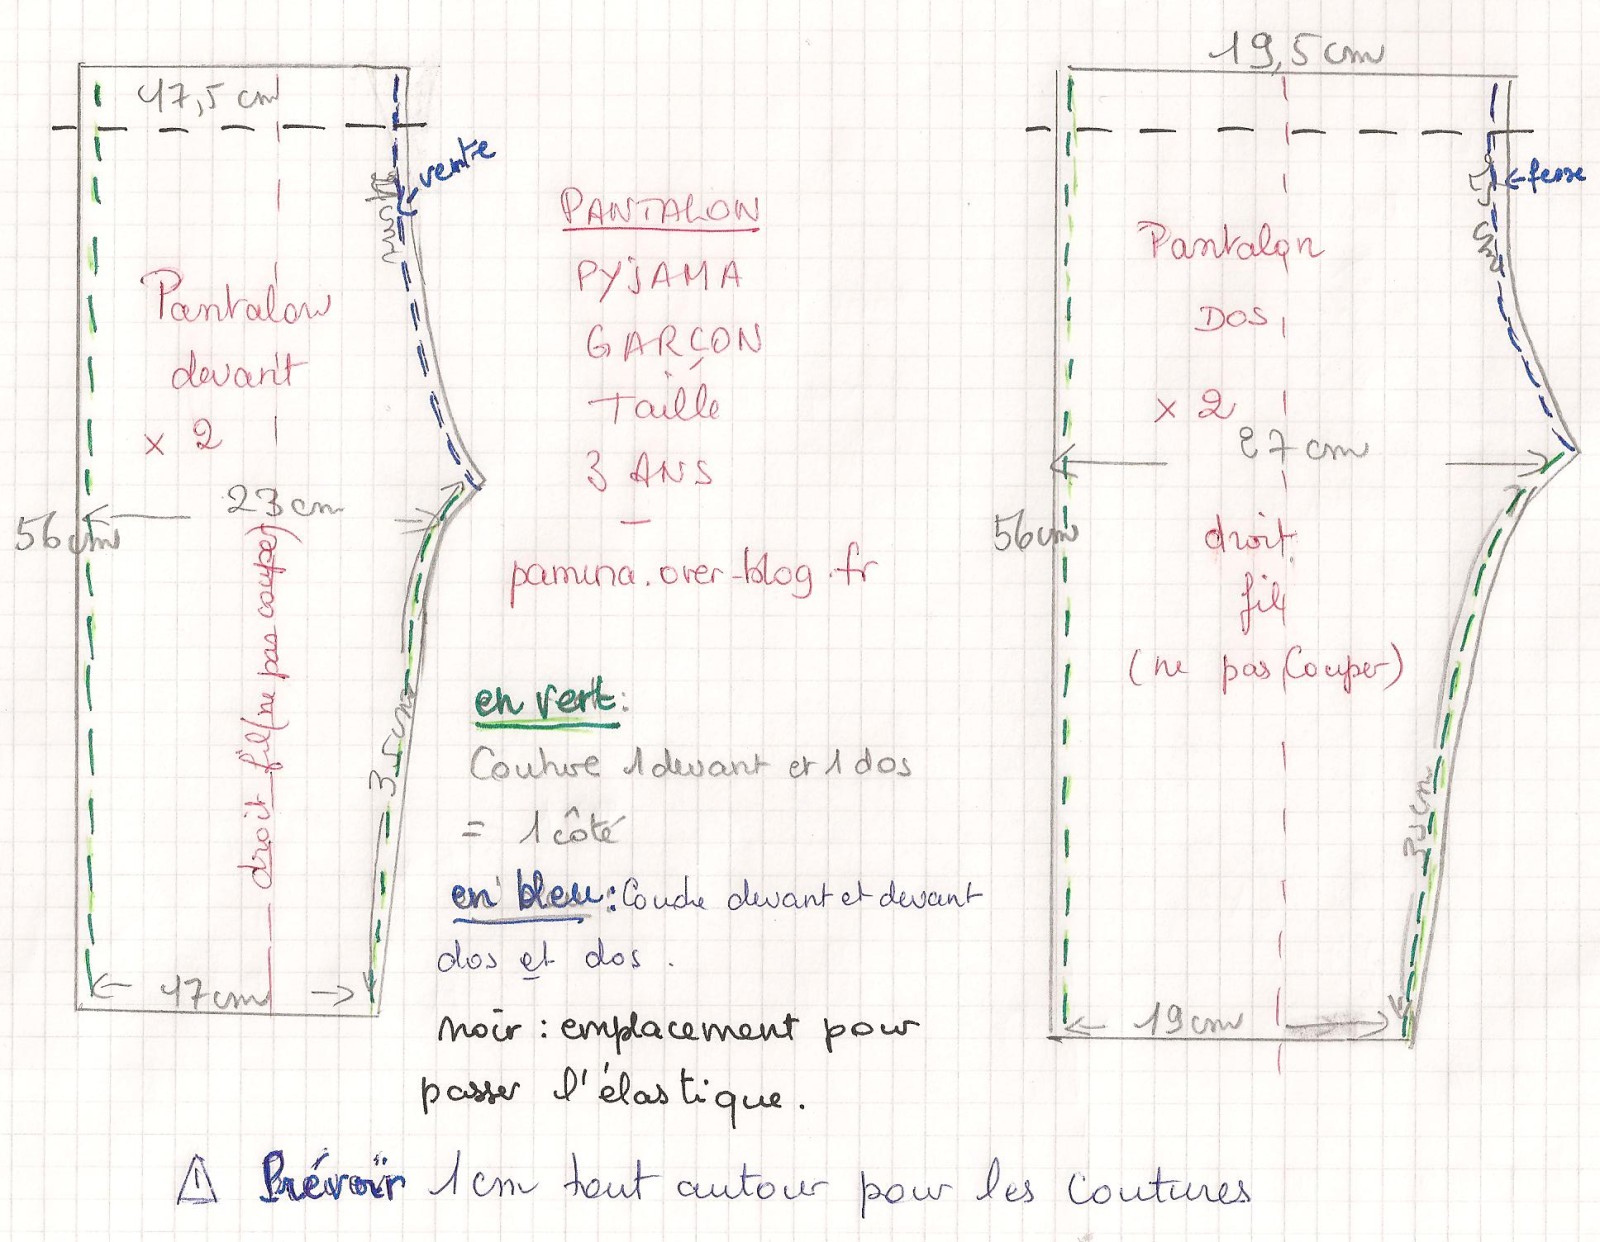 17,5 cm
ventre
Pantalon
devant
x 2
23 cm
56 cm
droit fil (ne pas couper)
35 cm
17 cm
PANTALON
PYJAMA
GARÇON
Taille
3 ANS
pamina.over-blog.fr
en vert:
Couture 1 devant et 1 dos
= 1 côté
en bleu: Coudre devant et devant
dos et dos.
noir : emplacement pour
passer l'élastique.
19,5 cm
fesse
Pantalon
DOS
x 2
27 cm
56 cm
droit
fil
(ne pas couper)
19 cm
⚠ Prévoir 1 cm tout autour pour les coutures